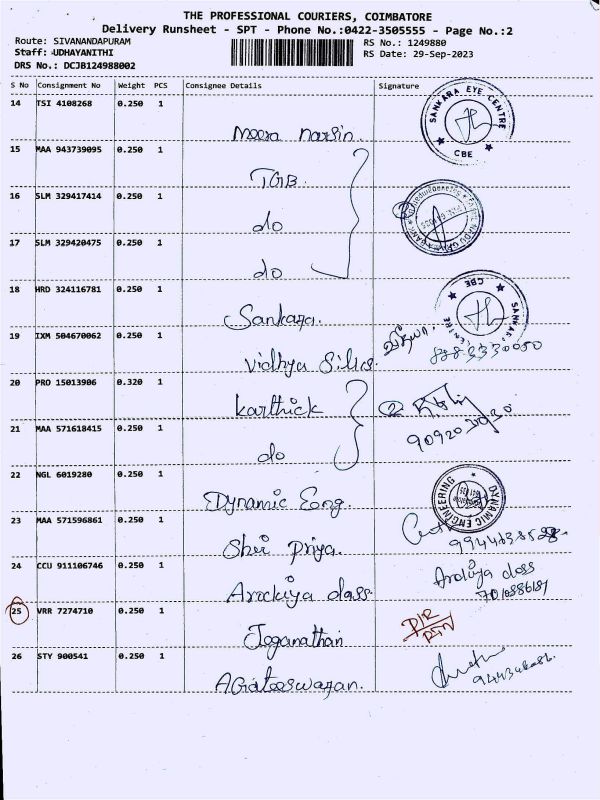 THE PROFESSIONAL COURIERS, COIMBATORE
Delivery Runsheet - SPT - Phone No.:0422-3505555 - Page No.:2
Route: SIVANANDAPURAM
RS No.: 1249880
Staff: UDHAYANITHI
RS Date: 29-Sep-2023
DRS No.: DCJB124988002
S No Consignment No Weight PCS Consignee Details Signature
14 TSI 4108268 0.250 1
Meera
SANKARA EYE CENTRE
CBE
15 MAA 943739095 0.250 1
TGB
16 SLM 329417414 0.250 1
do
17 SLM 329420475 0.250 1
do
18 HRD 324116781 0.250 1
Sankara.
CBE
19 IXM 504670062 0.250 1
Vidhya Silks.
20 PRO 15013906 0.320 1
Karthick
2
21 MAA 571618415 0.250 1
do
22 NGL 6019280 0.250 1
Dynamic Eng
DYNAMIC ENGINEERING
23 MAA 571596861 0.250 1
Shri Priya.
24 CCU 911106746 0.250 1
Arockiya dass.
Arokiya dass
25 VRR 7274710 0.250 1
Joganathan
26 STY 900541 0.250 1